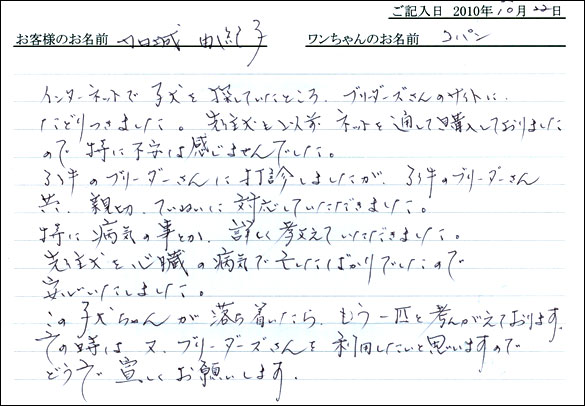 ご記入日 2010年10月22日
お客様のお名前 城 由紀子 ワンちゃんのお名前 コパン
インターネットで子犬を探していたところ、ブリーダーズさんのサイトに
たどりつきました。先住犬も以前ネットを通して購入しておりました
ので特に不安は感じませんでした。
3件のブリーダーさんに打診しましたが、3件のブリーダーさん
共、親切、ていねいに対応していただきました。
特に病気の事とか、詳しく教えていただきました。
先住犬を心臓の病気で亡したばかりでしたので
安心いたしました。
この子犬ちゃんが落ち着いたら、もう一匹と考んがえております。
その時は又、ブリーダーズさんを利用したいと思いますので
どうぞ宜しくお願いします。